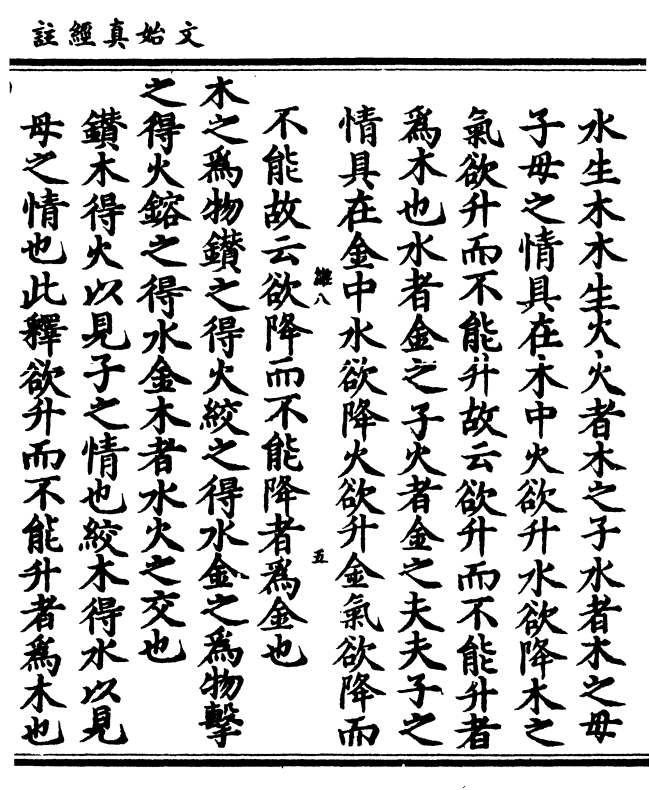 文始真經註
水生木木生火火者木之子水者木之母
子母之情具在木中火欲升水欲降木之
氣欲升而不能升故云欲升而不能升者
爲木也水者金之子火者金之夫夫子之
情具在金中水欲降火欲升金氣欲降而
雄八
五
不能故云欲降而不能降者爲金也
木之爲物鑽之得火絞之得水金之爲物擊
之得火鎔之得水金木者水火之交也
鑽木得火以見子之情也絞木得水以見
母之情也此釋欲升而不能升者爲木也